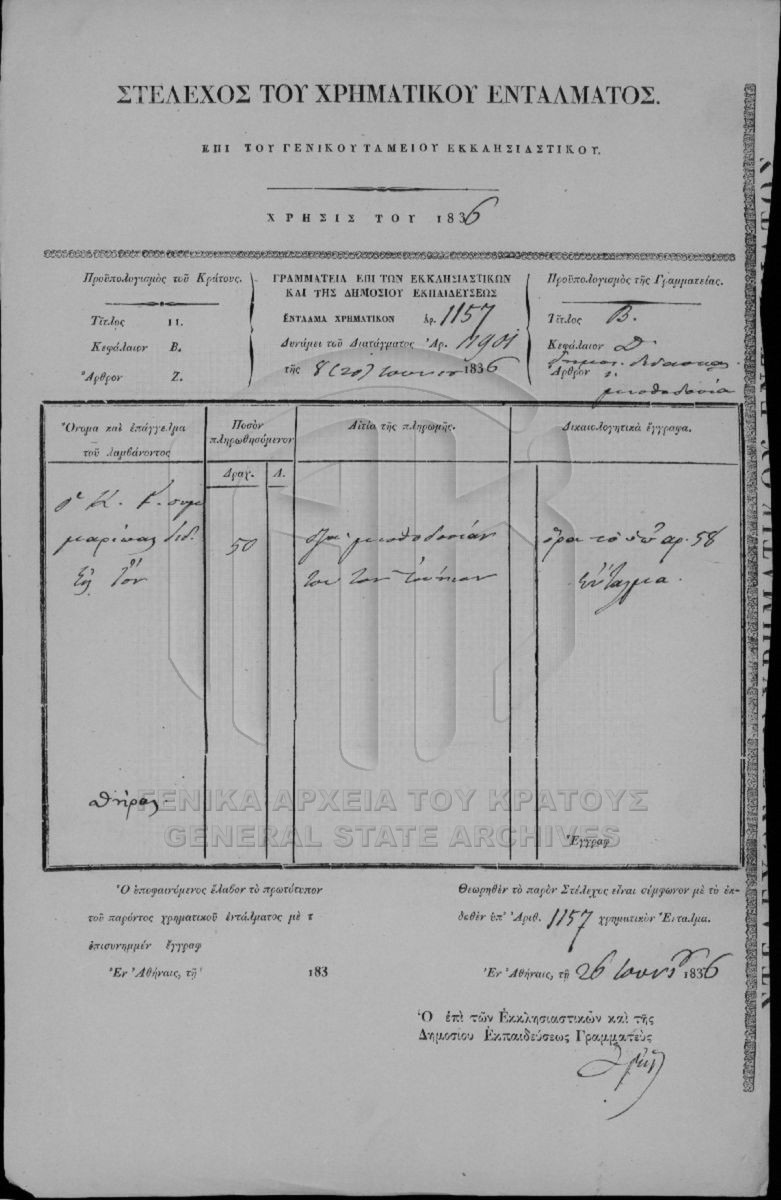 ΣΤΕΛΕΧΟΣ ΤΟΥ ΧΡΗΜΑΤΙΚΟΥ ΕΝΤΑΛΜΑΤΟΣ.
ΕΠΙ ΤΟΥ ΓΕΝΙΚΟΥ ΤΑΜΕΙΟΥ ΕΚΚΛΗΣΙΑΣΤΙΚΟΥ.
ΧΡΗΣΙΣ ΤΟΥ 1836
Προϋπολογισμὸς τοῦ Κράτους.
Τίτλος ΙΙ.
Κεφάλαιον Β.
Ἄρθρον Ζ.
ΓΡΑΜΜΑΤΕΙΑ ΕΠΙ ΤΩΝ ΕΚΚΛΗΣΙΑΣΤΙΚΩΝ
ΚΑΙ ΤΗΣ ΔΗΜΟΣΙΟΥ ΕΚΠΑΙΔΕΥΣΕΩΣ
ΕΝΤΑΛΜΑ ΧΡΗΜΑΤΙΚΟΝ Ἀρ. 1157
Δυνάμει τοῦ Διατάγματος Ἀρ. 1901
τῆς 8 (20) Ιουνίου 1836
Προϋπολογισμὸς τῆς Γραμματείας.
Τίτλος Β.
Κεφάλαιον Δ
Ἄρθρον
μισθοδοσία
Ὄνομα καὶ ἐπάγγελμα
τοῦ λαμβάνοντος
Ποσὸν
πληρωθησόμενον
Δραχ. Λ.
Αἰτία τῆς πληρωμῆς.
Δικαιολογητικὰ ἔγγραφα.
ὁ Κ. Γ.
διδ.
Θήρας
50
διὰ μισθοδοσίαν
του τον Ιούνιον
ὅρα τὸ ὑπ' αρ. 58
ἔνταλμα.
Ἔγγραφ
ΓΕΝΙΚΑ ΑΡΧΕΙΑ ΤΟΥ ΚΡΑΤΟΥΣ
GENERAL STATE ARCHIVES
Ὁ ὑποφαινόμενος ἔλαβον τὸ πρωτότυπον
τοῦ παρόντος χρηματικοῦ ἐντάλματος μὲ τ
ἐπισυνημμέν ἔγγραφ
Ἐν Ἀθήναις, τῇ 183
Θεωρηθὲν τὸ παρὸν Στέλεχος εἶναι σύμφωνον μὲ τὸ ἐκ-
δοθὲν ὑπ' Ἀριθ. 1157 χρηματικὸν Ἔνταλμα.
Ἐν Ἀθήναις, τῇ 26 Ιουνίου 1836
Ὁ ἐπὶ τῶν Ἐκκλησιαστικῶν καὶ τῆς
Δημοσίου Ἐκπαιδεύσεως Γραμματεὺς